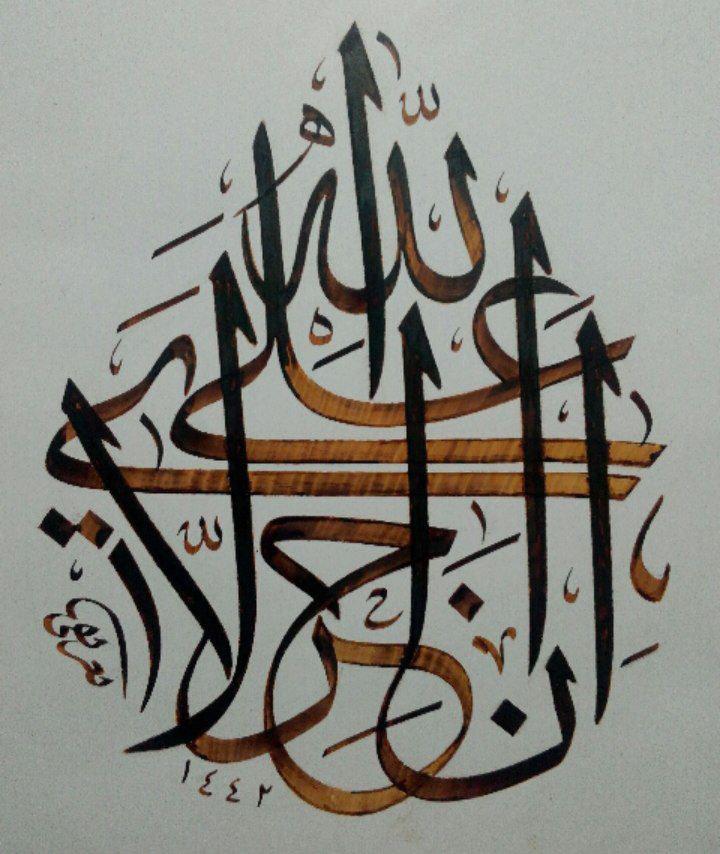 إِنْ أَجْرِيَ إِلَّا عَلَى اللّٰهِ
١٤٤٢